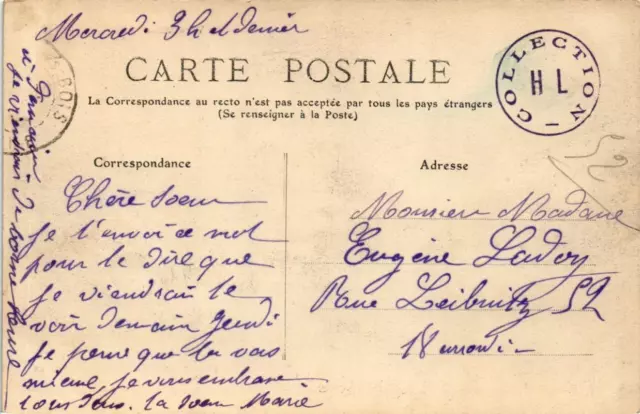 Mercredi 3h et demier
CARTE POSTALE
La Correspondance au recto n'est pas acceptée par tous les pays étrangers
(Se renseigner à la Poste)
COLLECTION
H L
BOIS
Correspondance
Chère Soeur
Je t'envoie ce mot
pour te dire que
je viendrai te
voir demain Jeudi
Je pense que tu vas
mieux, je vous embrasse
tous deux. ta Soeur Marie
à demain
je viendrai de bonne heure
Adresse
Monsieur Madame
Eugène Ladoy
Rue Leibnitz 52
18